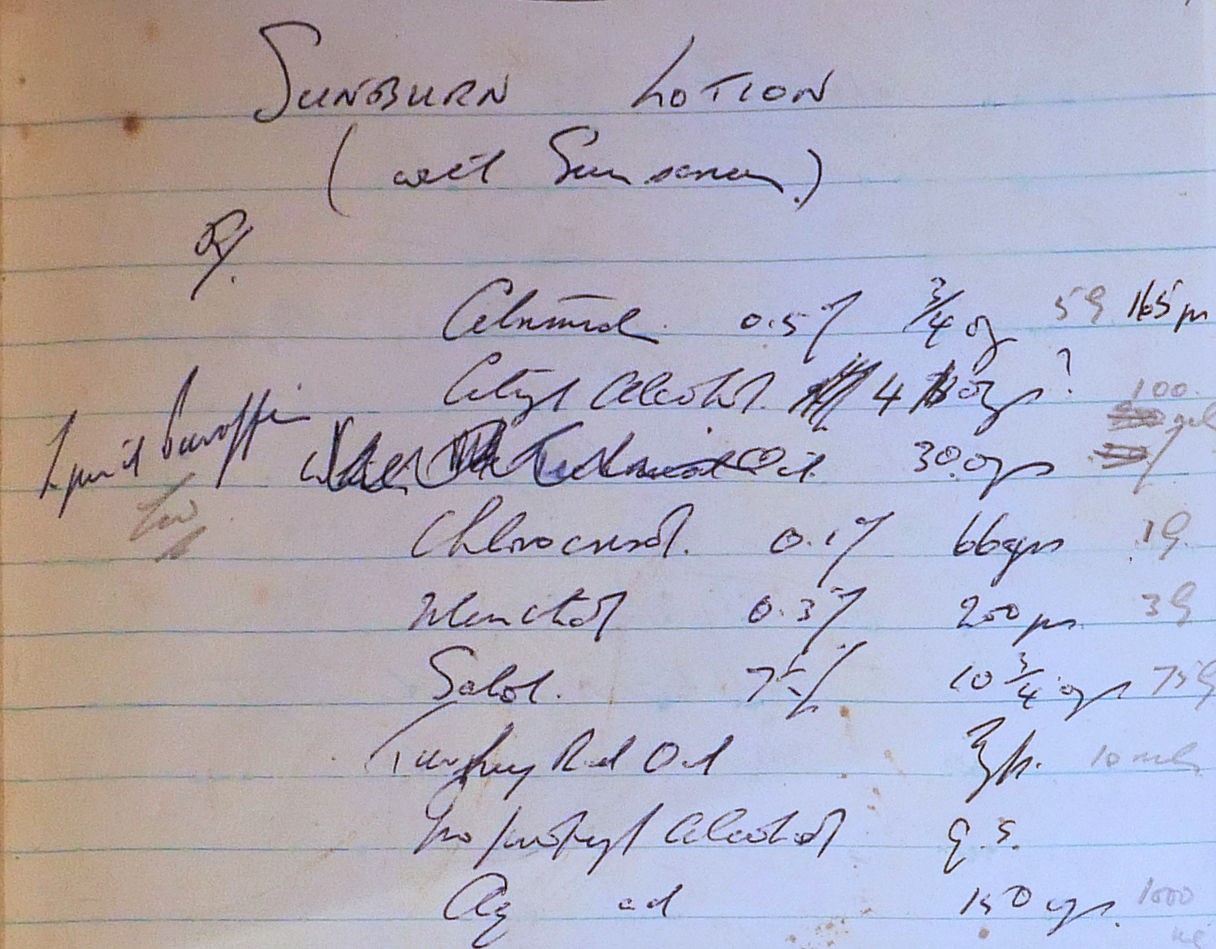 SUNBURN LOTION
(with Sunscreen.)
℞
Cetrimide 0.5% 3/4 oz 5G 165 grs
Cetyl Alcohol. 4 ozs ? 100
Liquid Paraffin Oil 30 ozs
Chlorocresol. 0.1% 66 grs 1G.
Menthol 0.3% 200 grs. 3G
Salol. 7.5% 10 3/4 ozs 75G
Turkey Red Oil 10 mls
Isopropyl Alcohol q.s.
Aq ad 150 ozs. 1000